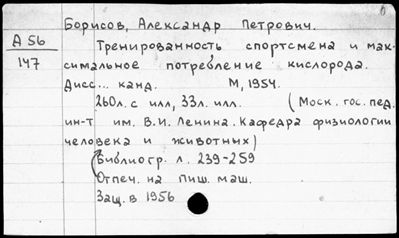 6
Борисов, Александр Петрович.
А 56
147
Тренированность спортсмена и мак-
симальное потребление кислорода.
Дисс... канд. М, 1954.
260л. с илл, 33л. илл. (Моск. гос. пед.
ин-т им. В.И. Ленина. Кафедра физиологии
человека и животных)
Библиогр. л. 239-259
Отпеч. на пиш. маш.
Защ. в 1956